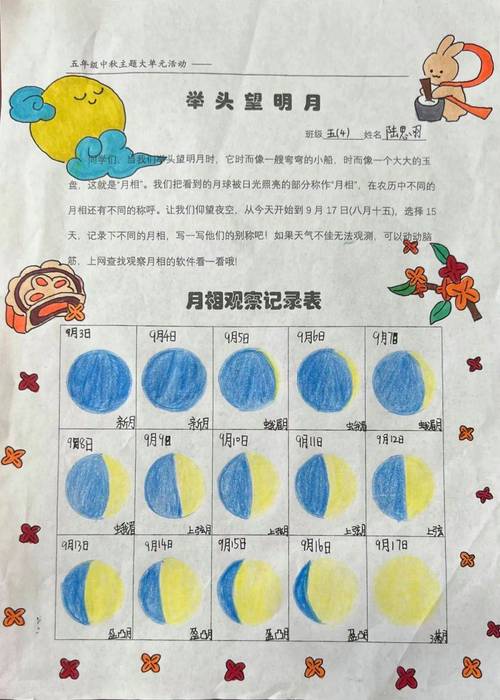 五年级中秋主题大单元活动 ——
举头望明月
班级 五(4) 姓名 陆思羽
同学们，当我们举头望明月时，它时而像一艘弯弯的小船，时而像一个大大的玉
盘，这就是“月相”。我们把看到的月球被日光照亮的部分称作“月相”，在农历中不同的
月相还有不同的称呼。让我们仰望夜空，从今天开始到 9 月 17 日(八月十五)，选择 15
天，记录下不同的月相，写一写他们的别称吧！如果天气不佳无法观测，可以动动脑
筋，上网查找观察月相的软件看一看哦!
月相观察记录表
9月3日 9月4日 9月5日 9月6日 9月7日
新月 新月 蛾眉月 蛾眉 蛾眉月
9月8日 9月9日 9月10日 9月11日 9月12日
蛾眉 上弦月 上弦月 上弦月 上弦
9月13日 9月14日 9月15日 9月16日 9月17日
盈凸月 盈凸月 盈凸月 盈凸月 满月